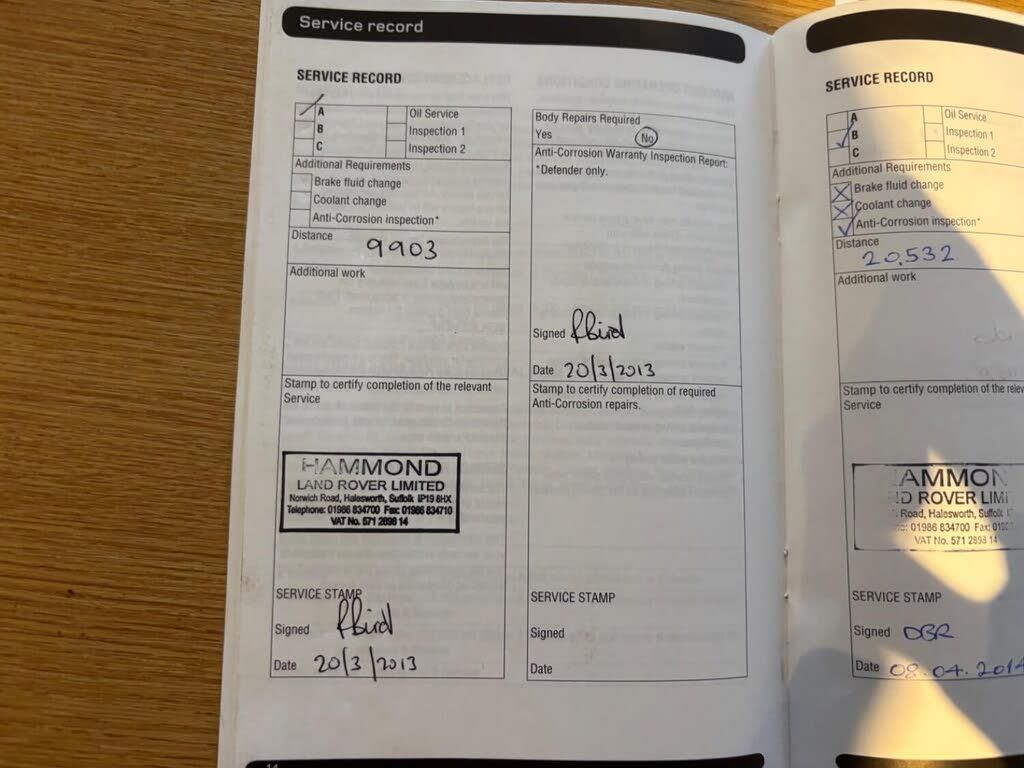 Service record
SERVICE RECORD
A Oil Service
B Inspection 1
C Inspection 2
Additional Requirements
Brake fluid change
Coolant change
Anti-Corrosion inspection*
Distance
9903
Additional work
Stamp to certify completion of the relevant
Service
HAMMOND
LAND ROVER LIMITED
Norwich Road, Halesworth, Suffolk IP19 8HX
Telephone: 01986 834700 Fax: 01986 834710
VAT No. 571 2898 14
SERVICE STAMP
Signed RBird
Date 20/3/2013
Body Repairs Required
Yes No
Anti-Corrosion Warranty Inspection Report:
*Defender only.
Signed RBird
Date 20/3/2013
Stamp to certify completion of required
Anti-Corrosion repairs.
SERVICE STAMP
Signed
Date
14
SERVICE RECORD
A Oil Service
B Inspection 1
C Inspection 2
Additional Requirements
Brake fluid change
Coolant change
Anti-Corrosion inspection*
Distance
20,532
Additional work
Stamp to certify completion of the
Service
AMMON
D ROVER LIMI
Road, Halesworth, Suffolk
01986 834700 Fax:
VAT No. 571 2898 14
SERVICE STAMP
Signed DBR
Date 08.04.2014